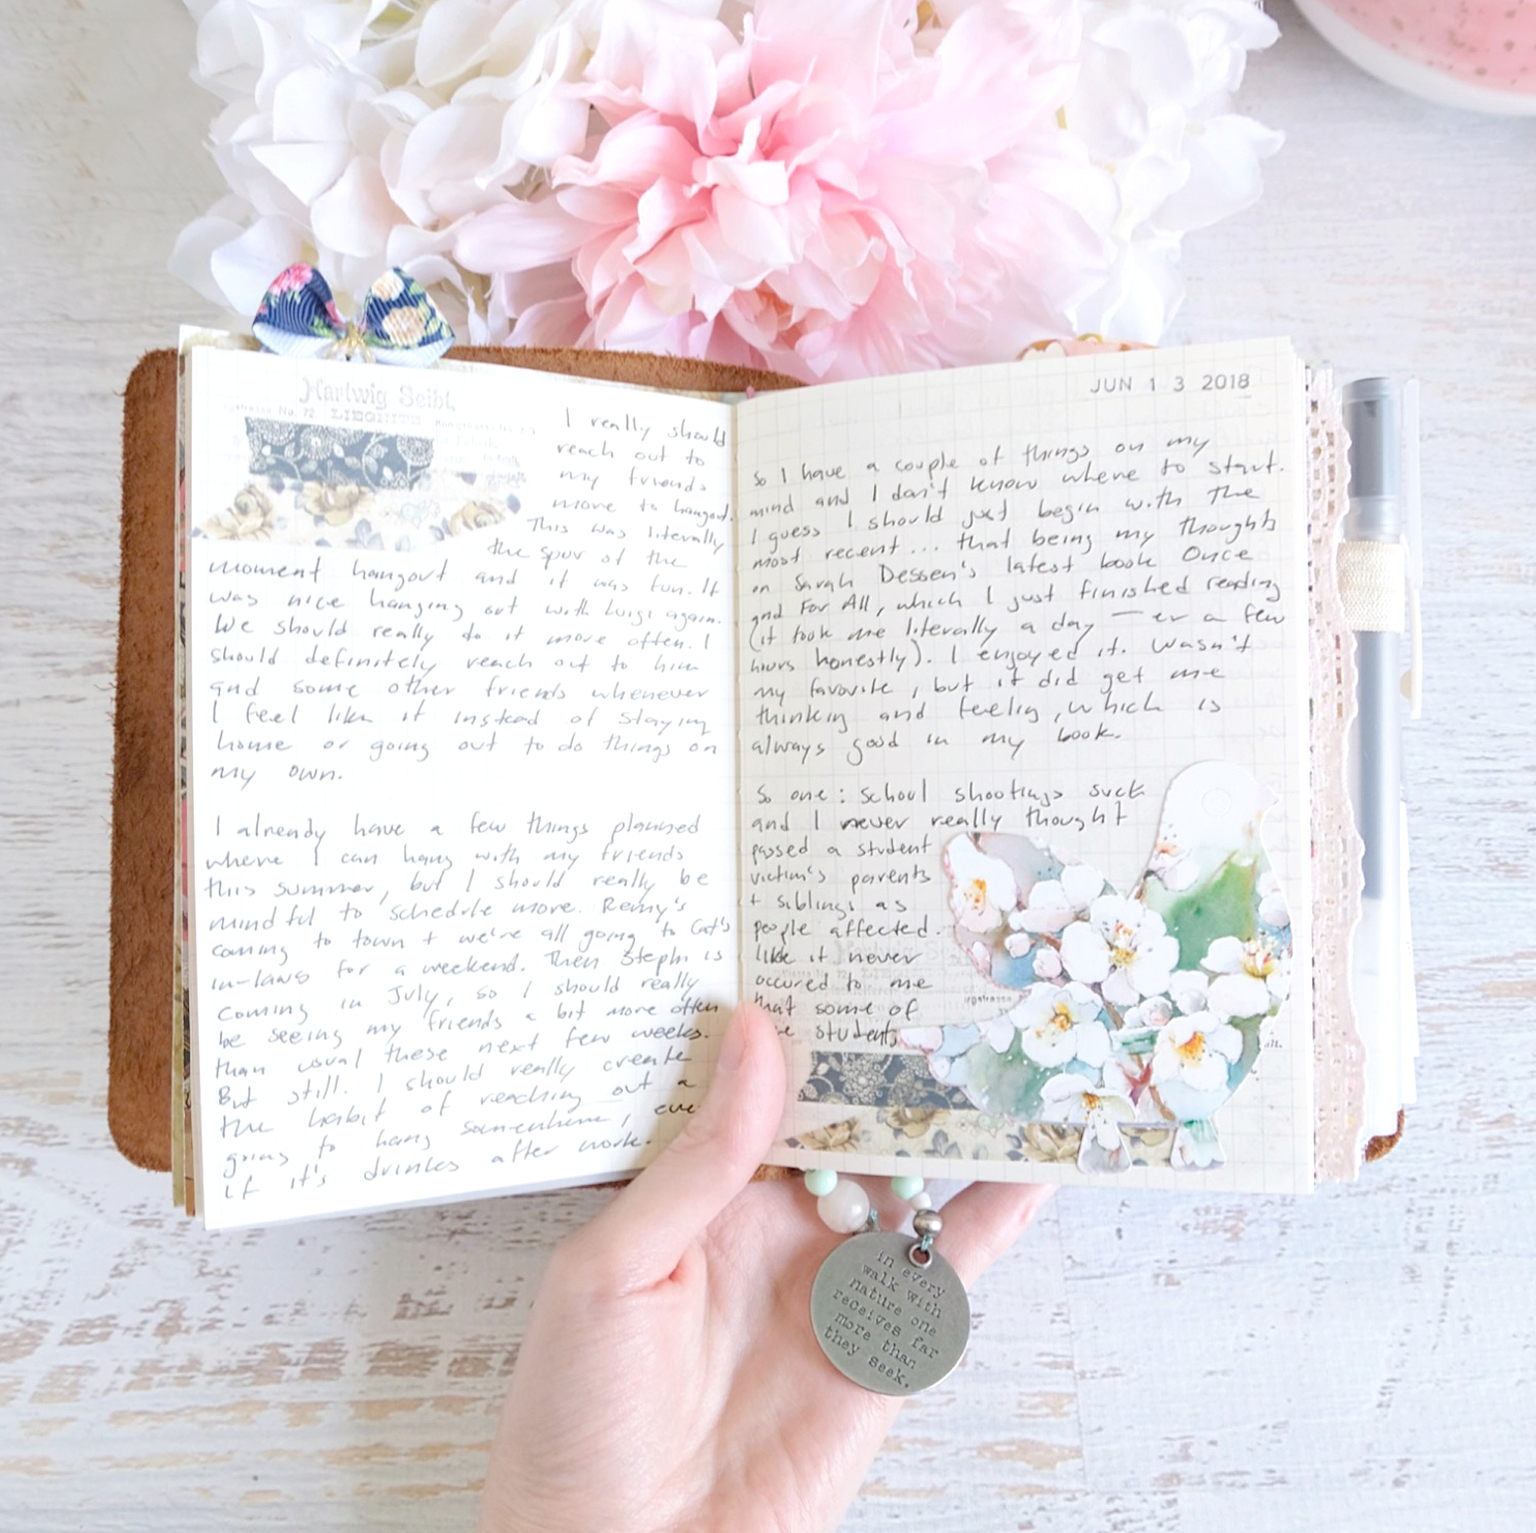 Hartwig Seibt,
No. 72 LIEGNITZ
I really should
reach out to
my friends
more to hangout.
This was literally
the spur of the
moment hangout and it was fun. It
was nice hanging out with Luigi again.
We should really do it more often. I
should definitely reach out to him
and some other friends whenever
I feel like it instead of staying
home or going out to do things on
my own.
I already have a few things planned
where I can hang with my friends
this summer, but I should really be
mindful to schedule more. Remy's
coming to town + we're all going to Cat's
in-laws for a weekend. Then Steph is
coming in July, so I should really
be seeing my friends a bit more often
than usual these next few weeks.
But still. I should really create
the habit of reaching out a
going to hang somewhere, even
if it's drinks after work.
JUN 1 3 2018
So I have a couple of things on my
mind and I don't know where to start.
I guess I should just begin with the
most recent... that being my thoughts
on Sarah Dessen's latest book Once
and For All, which I just finished reading
(it took me literally a day — er a few
hours honestly). I enjoyed it. Wasn't
my favorite, but it did get me
thinking and feeling, which is
always good in my book.
So one: school shootings suck
and I never really thought
passed a student
victim's parents
+ siblings as
people affected.
like it never
occured to me
that some of
student
in every
walk with
nature one
receives far
more than
they seek.